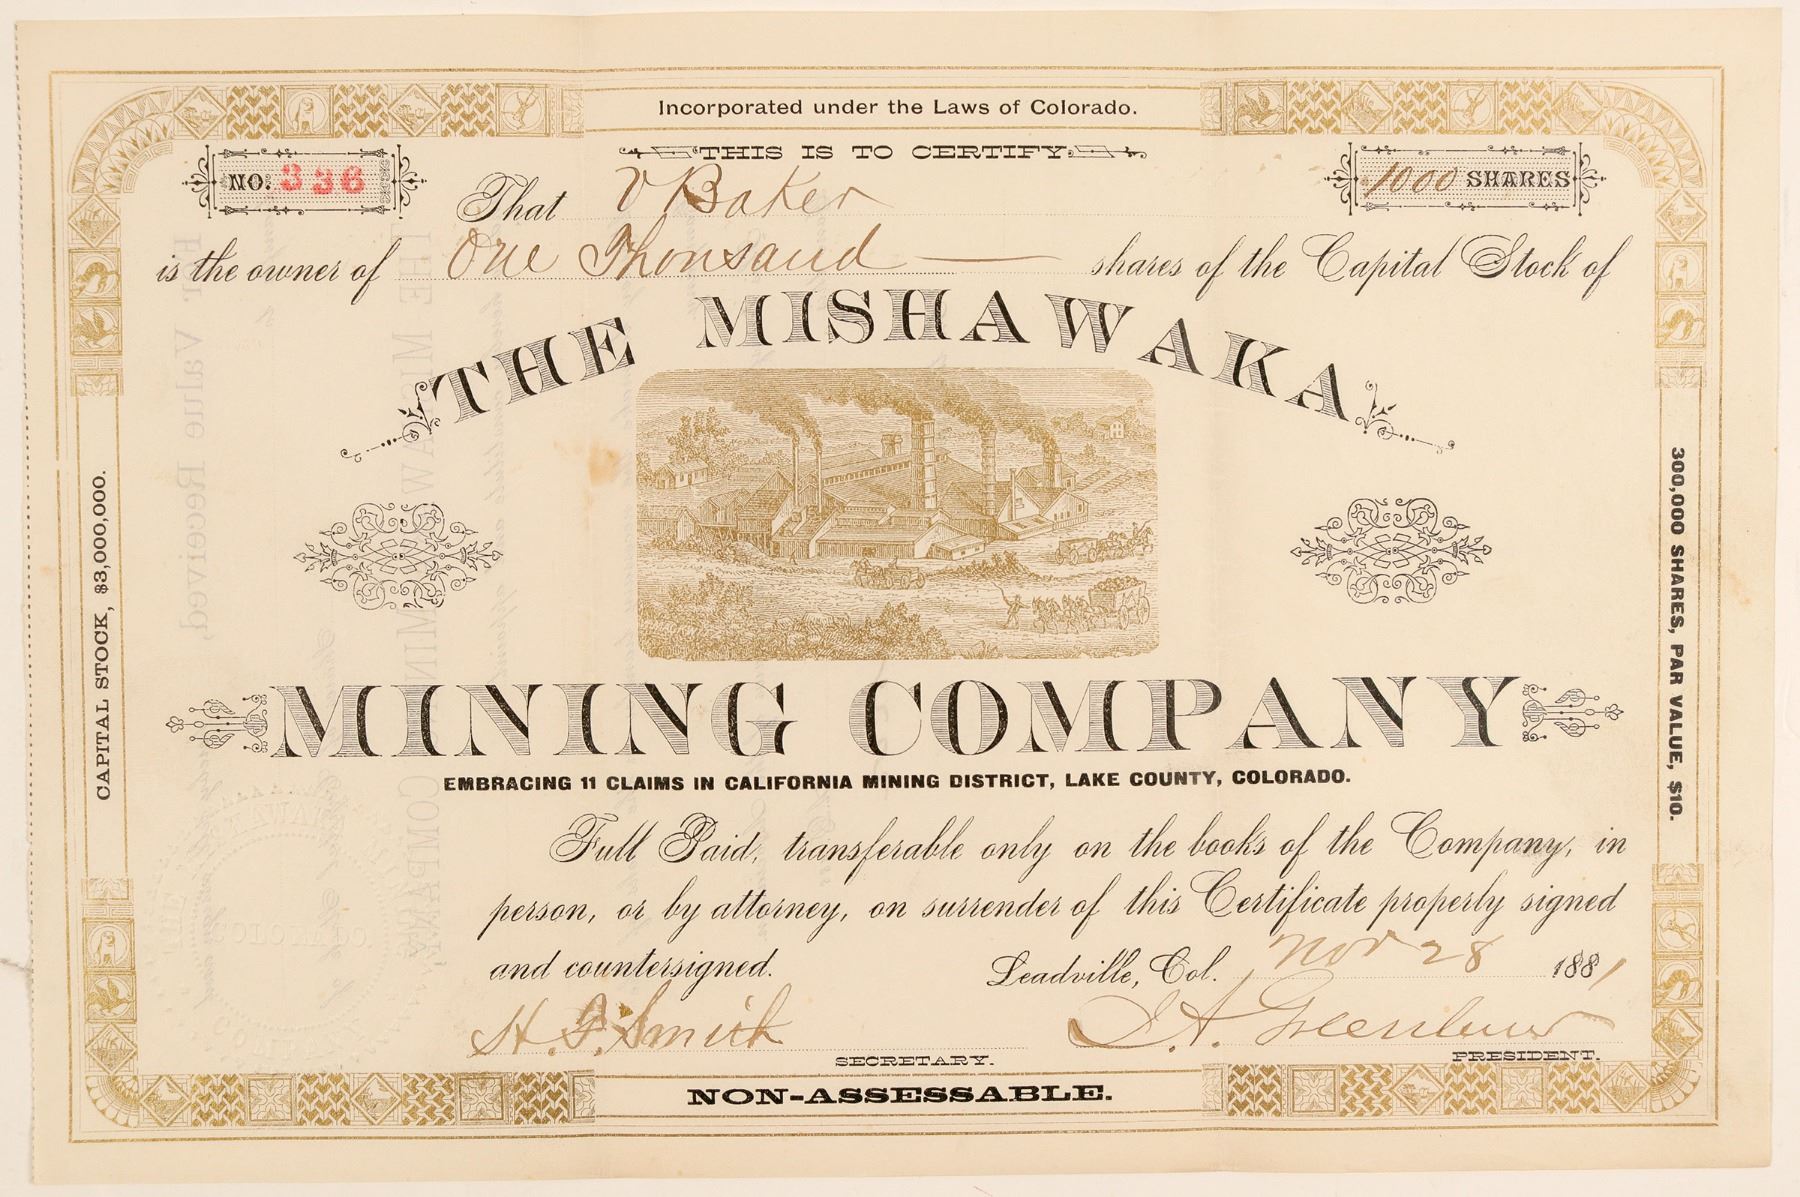 Incorporated under the Laws of Colorado.
THIS IS TO CERTIFY
NO. 336
1000 SHARES
That V Baker
is the owner of One Thousand shares of the Capital Stock of
THE MISHAWAKA
MINING COMPANY
EMBRACING 11 CLAIMS IN CALIFORNIA MINING DISTRICT, LAKE COUNTY, COLORADO.
Full Paid, transferable only on the books of the Company, in
person, or by attorney, on surrender of this Certificate properly signed
and countersigned.
Leadville, Col. Nov 28 1881
H. G. Smith
SECRETARY.
PRESIDENT.
NON-ASSESSABLE.
CAPITAL STOCK, $3,000,000.
300,000 SHARES, PAR VALUE, $10.
For Value Received,